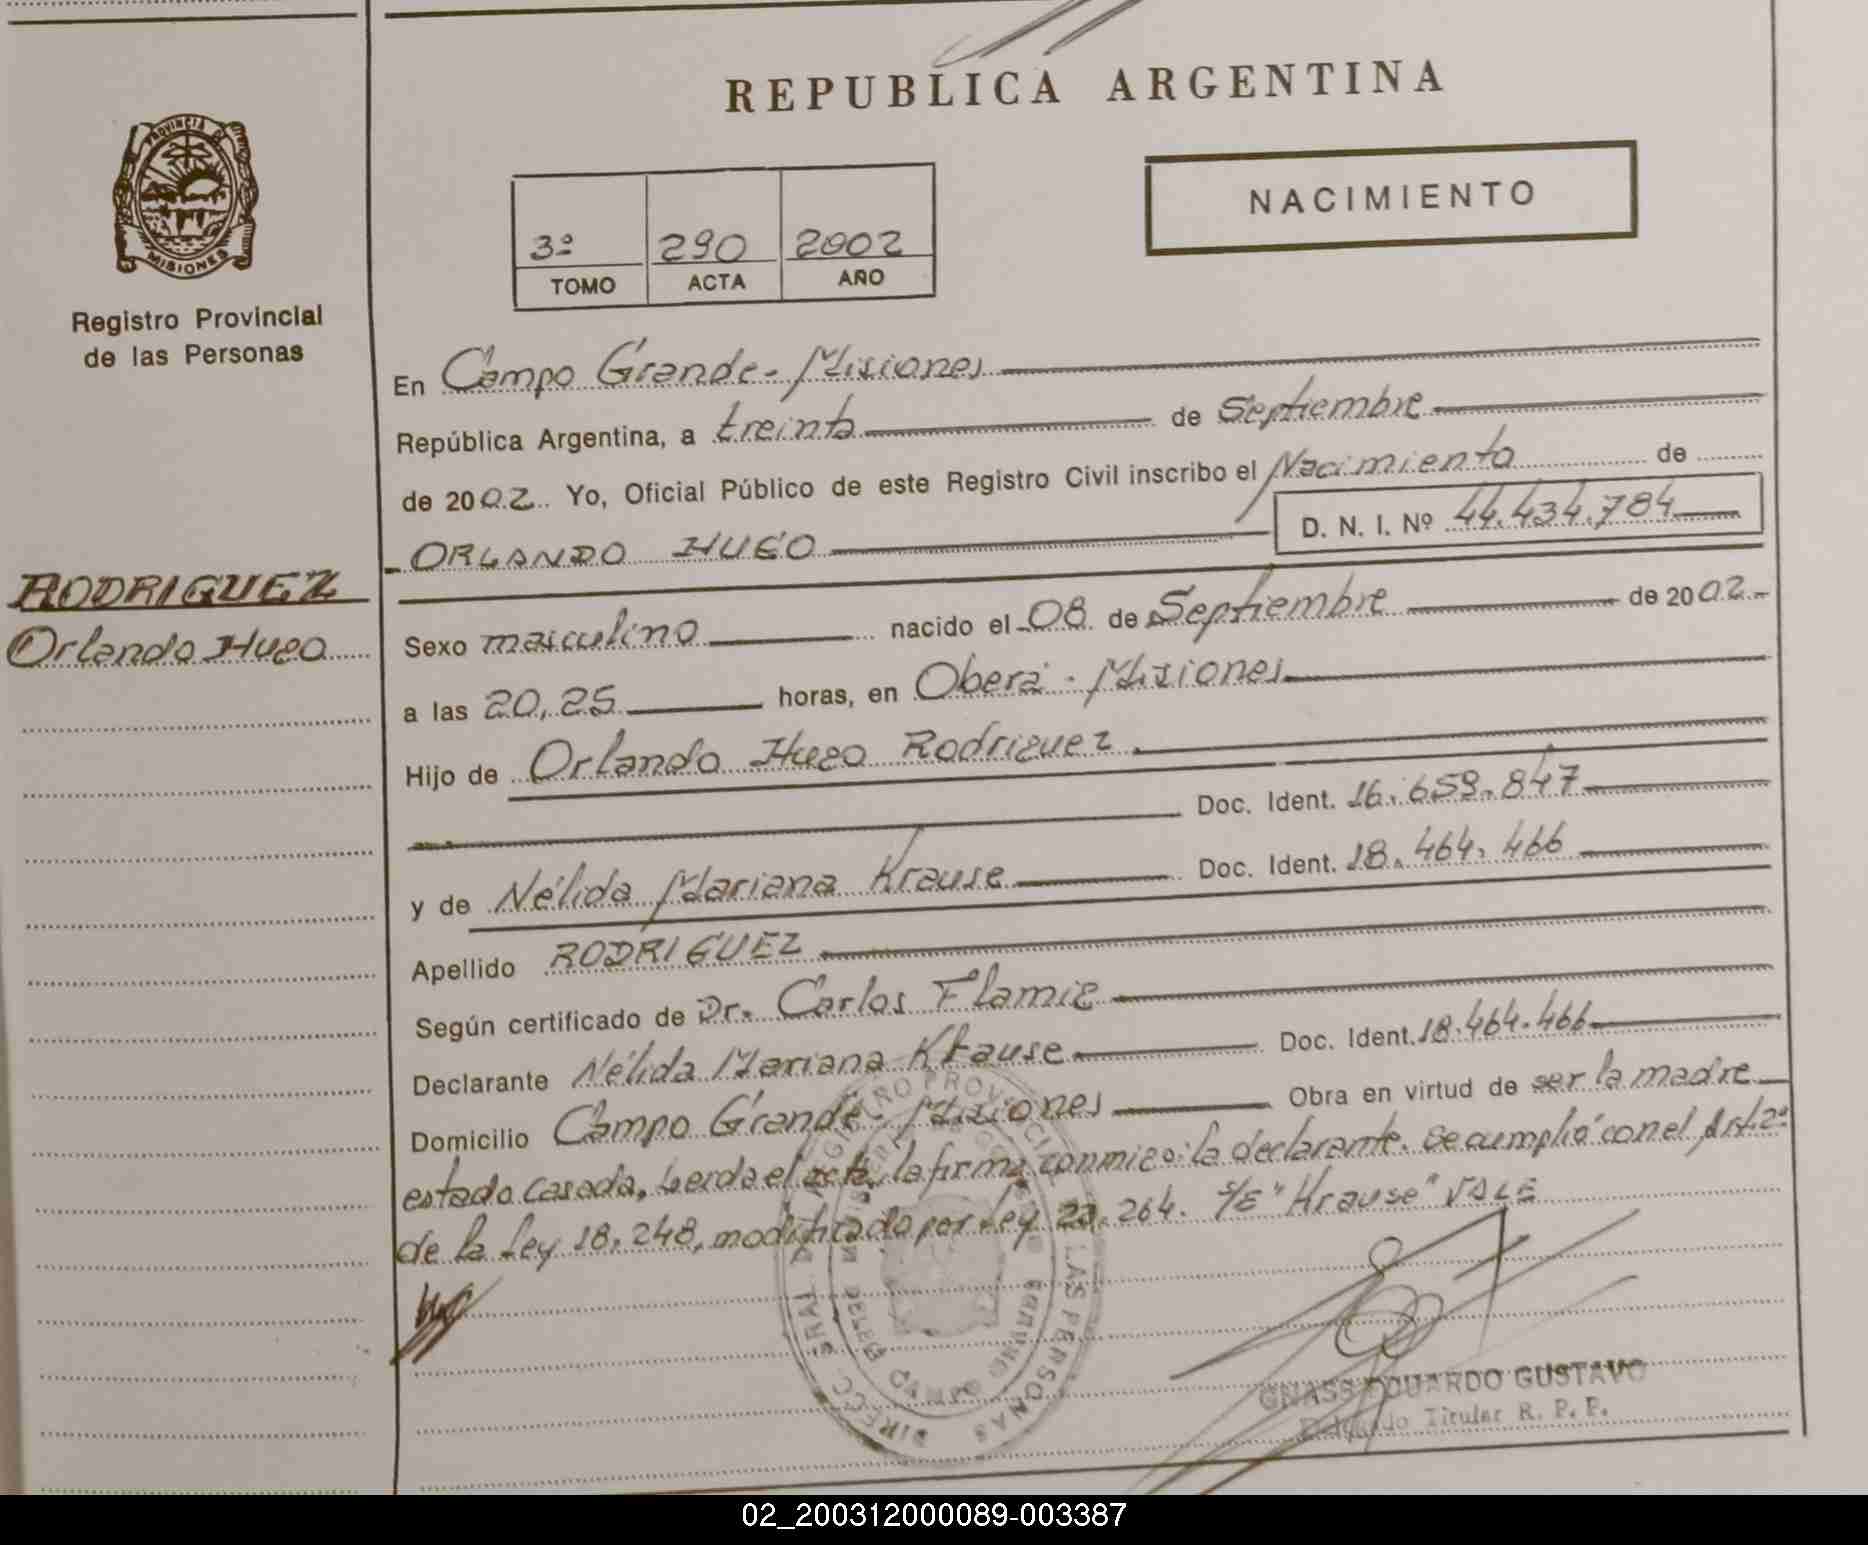 REPUBLICA ARGENTINA
PROVINCIA DE
MISIONES
Registro Provincial
de las Personas
NACIMIENTO
3º 290 2002
TOMO ACTA AÑO
En Campo Grande - Misiones
República Argentina, a treinta de Septiembre
de 2002. Yo, Oficial Público de este Registro Civil inscribo el Nacimiento de
ORLANDO HUGO D. N. I. Nº 44.434.784
RODRIGUEZ
Orlando Hugo
Sexo masculino nacido el 08 de Septiembre de 2002.-
a las 20,25 horas, en Oberá - Misiones
Hijo de Orlando Hugo Rodriguez
Doc. Ident. 16.659.847
y de Nélida Mariana Krause Doc. Ident. 18.464.466
Apellido RODRIGUEZ
Según certificado de Dr. Carlos
Declarante Nélida Mariana Krause Doc. Ident. 18.464.466
Domicilio Campo Grande - Misiones Obra en virtud de ser la madre
estado casada. Leerda el acta, la firma conmigo: la declarante. Se cumplió con el Art. 2º
de la Ley 18.248, modificado por Ley 23.264. S/E "Krause" VALE
GNASS EDUARDO GUSTAVO
Delegado Titular R. P. P.
02_200312000089-003387